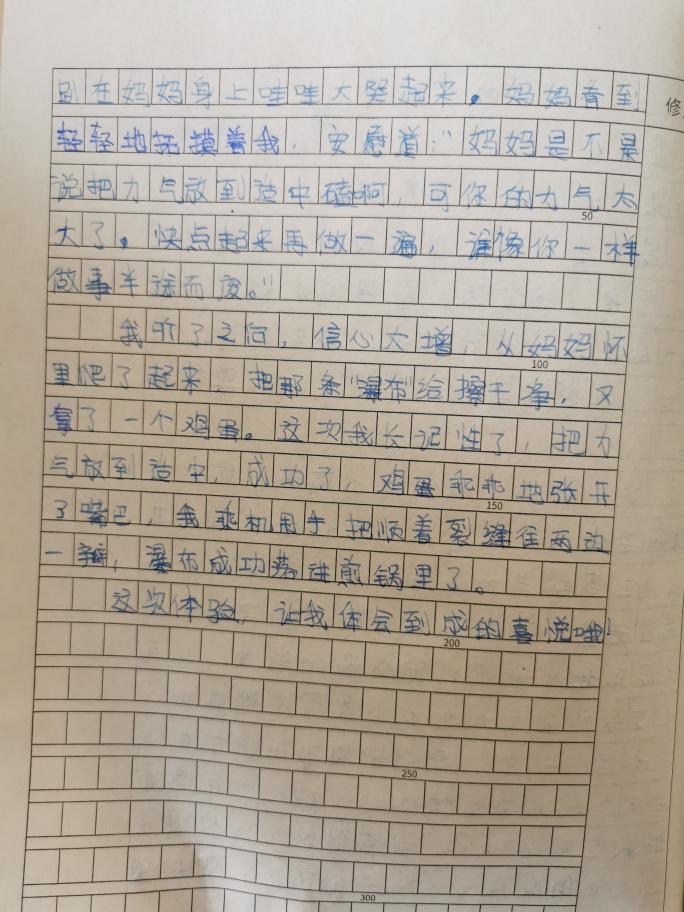 趴在妈妈身上哇哇大哭起来。妈妈看到
修
轻轻地抚摸着我，安慰道："妈妈是不是
说把力气放到适中磕啊，可你的力气太
50
大了。快点起来再做一遍，谁像你一样
做事半途而废。"
我听了之后，信心大增，从妈妈怀
100
里爬了起来，把那条"瀑布"给擦干净，又
拿了一个鸡蛋。这次我长记性了，把力
气放到适中，成功了，鸡蛋乖乖地张开
150
了嘴巴，我乖机用手把顺着裂缝往两边
一掰，瀑布成功落进煎锅里了。
这次体验，让我体会到成的喜悦哦！
200
250
300